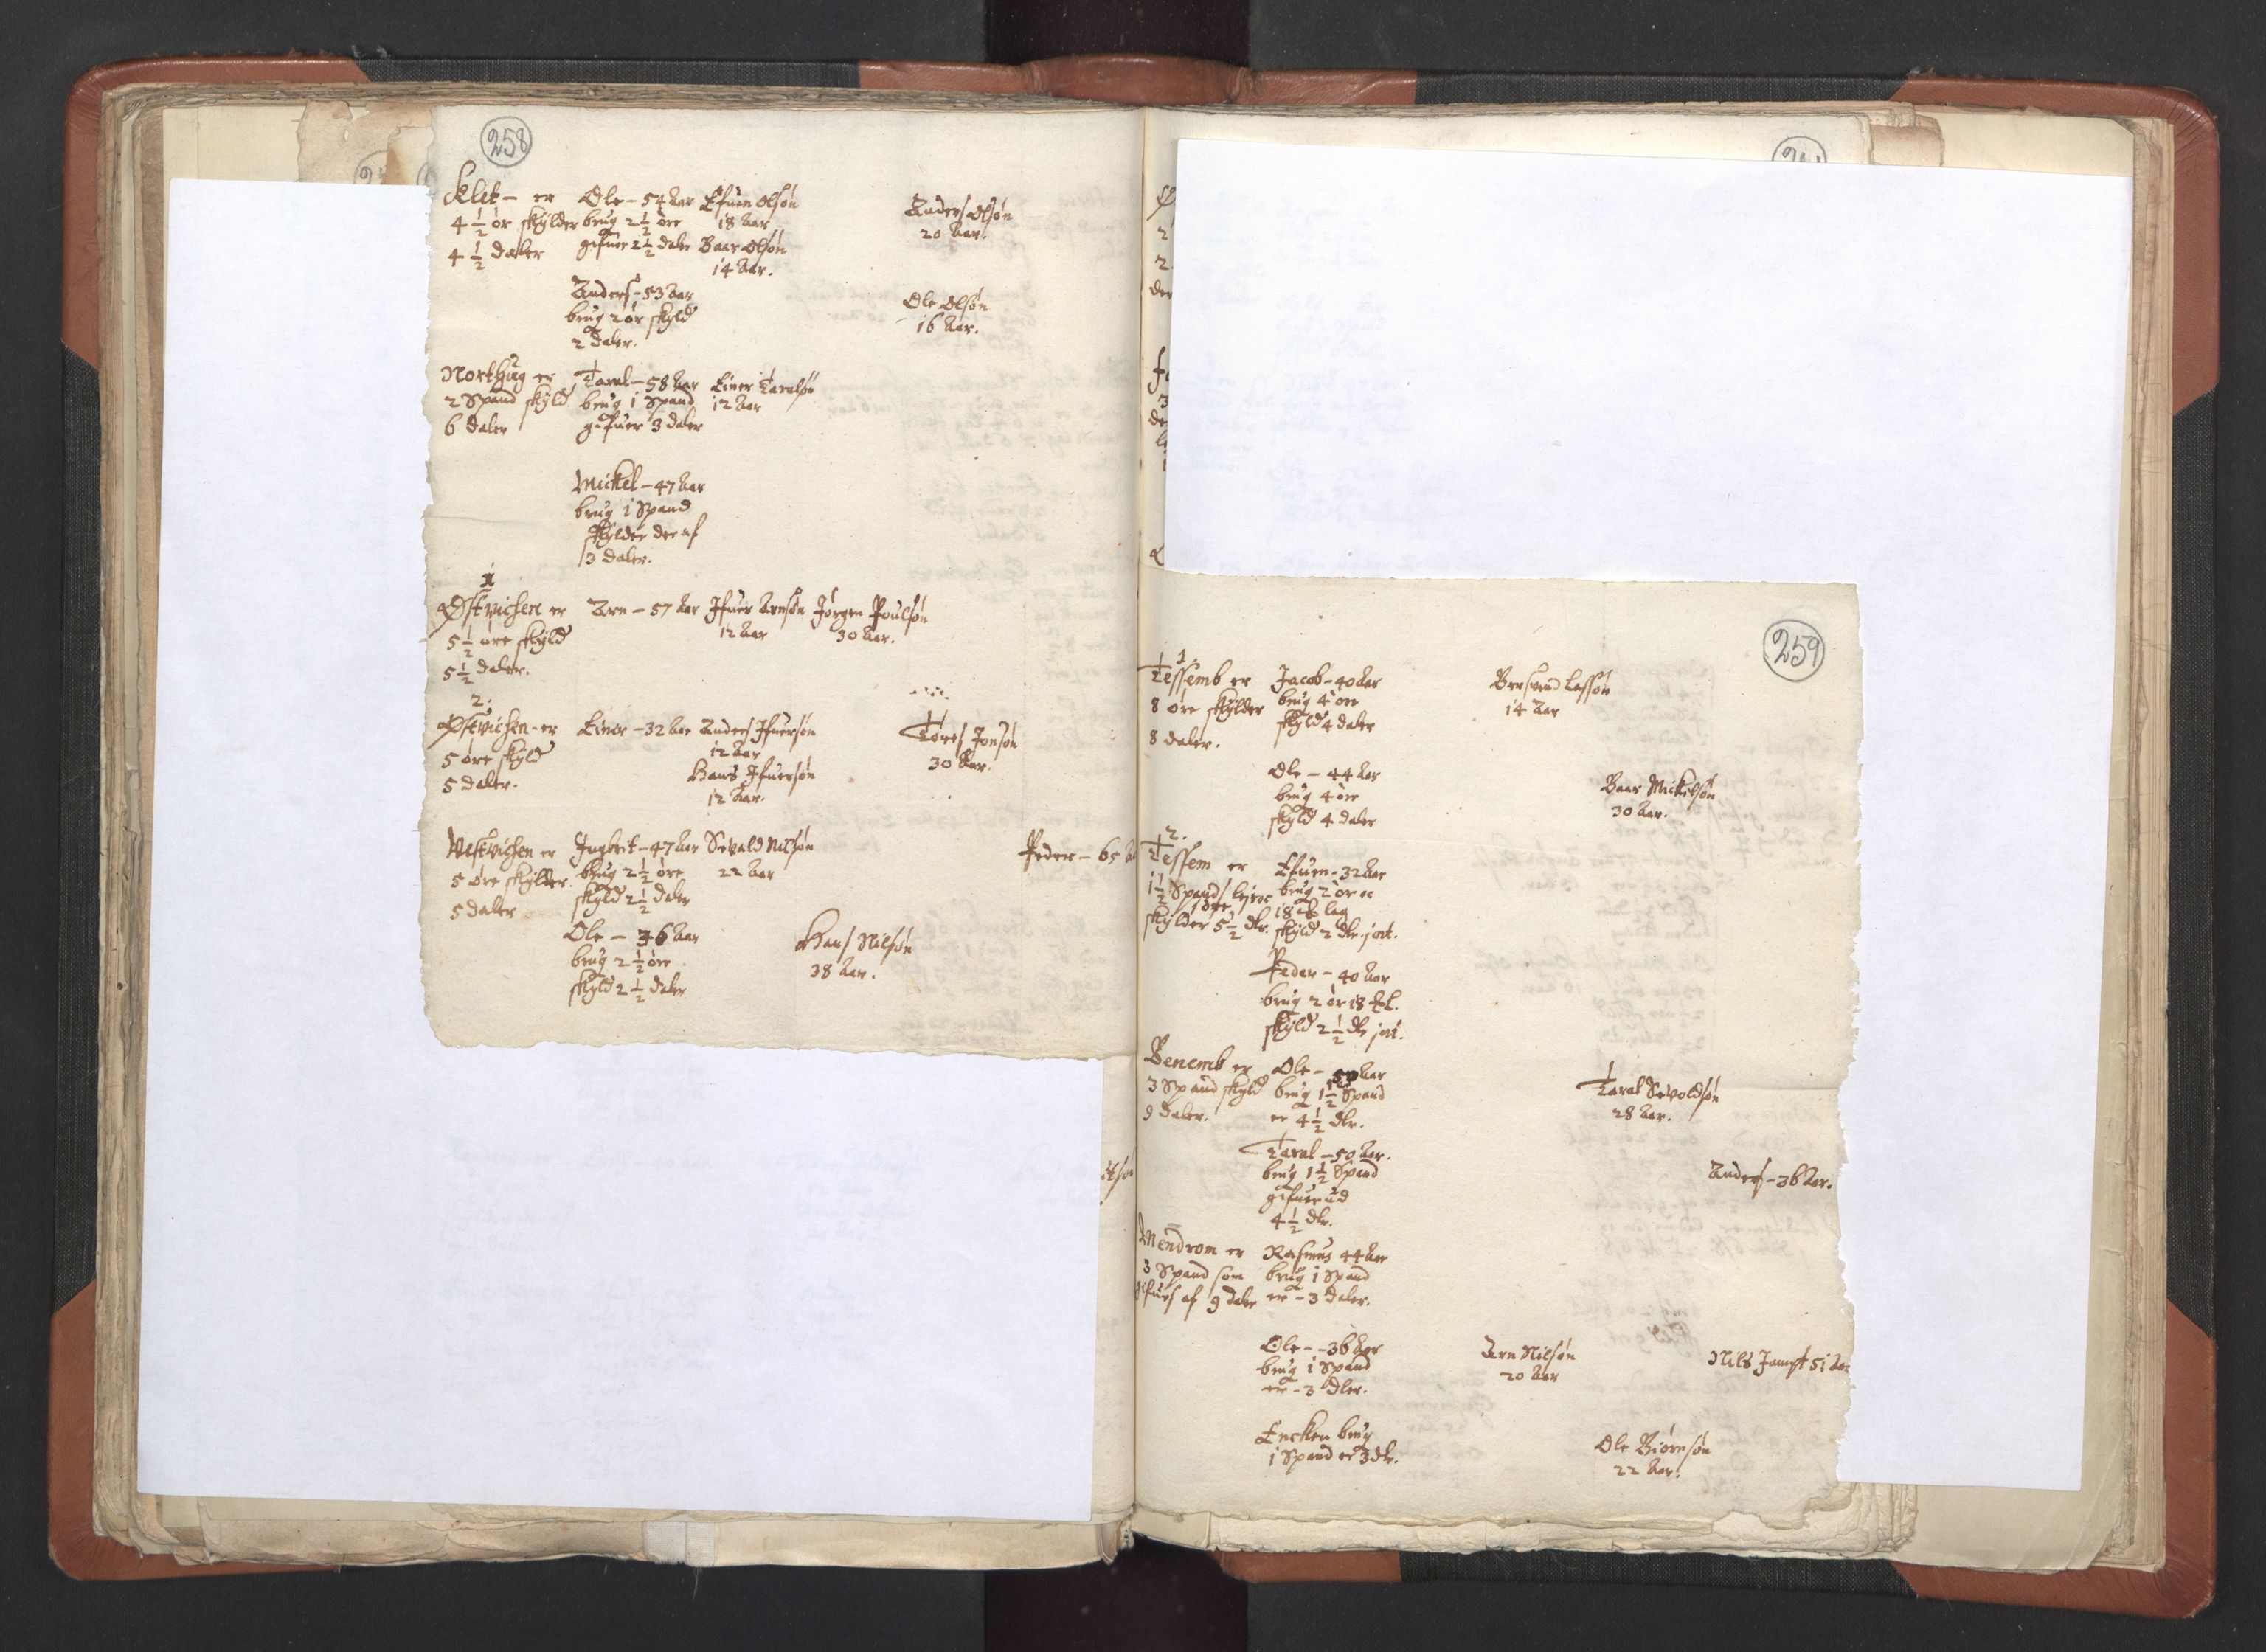 258
Klet – er Ole – 54 Aar Efuen Olsøn Anders Olsøn
4 1/2 ør skylder brug 2 1/2 øre 18 Aar 20 Aar.
4 1/2 daler gifuer 2 1/2 daler Baar Olsøn
14 Aar.
Anders – 53 Aar Ole Olsøn
brug 2 ør skyld 16 Aar.
2 daler.
Northug er Taral – 58 Aar Einer Taralsøn
2 Spand skyld brug 1 Spand 12 Aar
6 daler gifuer 3 daler
Mickel – 47 Aar
brug 1 Spand
skylder der af
3 daler.
1
Østvichen er Arn – 57 Aar Ifuer Arnsøn Jørgen Poulsøn
5 1/2 øre skyld 12 Aar 30 Aar.
5 1/2 daler.
2.
Østvichen – er Einer – 32 Aar Anders Ifuersøn Tores Jonsøn
5 øre skyld 12 Aar 30 Aar.
5 daler. Hans Ifuersøn
12 Aar.
Vestvichen er Ingbrit – 47 Aar Sivald Nilsøn Peder – 65
5 øre skylder brug 2 1/2 øre 22 Aar
5 daler skyld 2 1/2 daler
Ole – 36 Aar Hans Nilsøn
brug 2 1/2 øre 38 Aar.
skyld 2 1/2 daler
259
1.
Tessemb er Jacob – 40 Aar Lassøn
8 øre skylder brug 4 øre 14 Aar
8 daler. skyld 4 daler
Ole – 44 Aar Baar Mickelsøn
brug 4 øre 30 Aar.
skyld 4 daler
2.
Tessem er Efuen – 32 Aar
1 1/2 Spand 1 øre brug 2 ør oc
18 lag
skylder 5 1/2 dlr. skyld 2 dlr. jort.
Peder – 40 Aar
brug 2 ør 18
skyld 2 1/2 dlr jort.
Benemb er Ole – 50 Aar Taral Sivoldsøn
3 Spand skyld brug 1 1/2 Spand 28 Aar.
9 daler. er 4 1/2 dlr.
Taral – 50 Aar. Anders – 36 Aar.
brug 1 1/2 Spand
gifuer ud
4 1/2 dlr.
Mendrom er Rasmus 44 Aar
3 Spand som brug 1 Spand
gifues af 9 daler er – 3 daler.
Ole – 36 Aar Arn Nilsøn Nils Jampt 51 Aar
brug 1 Spand 20 Aar
er – 3 dlr.
Encken brug Ole Biørnsøn
1 Spand er 3 dlr. 22 Aar.